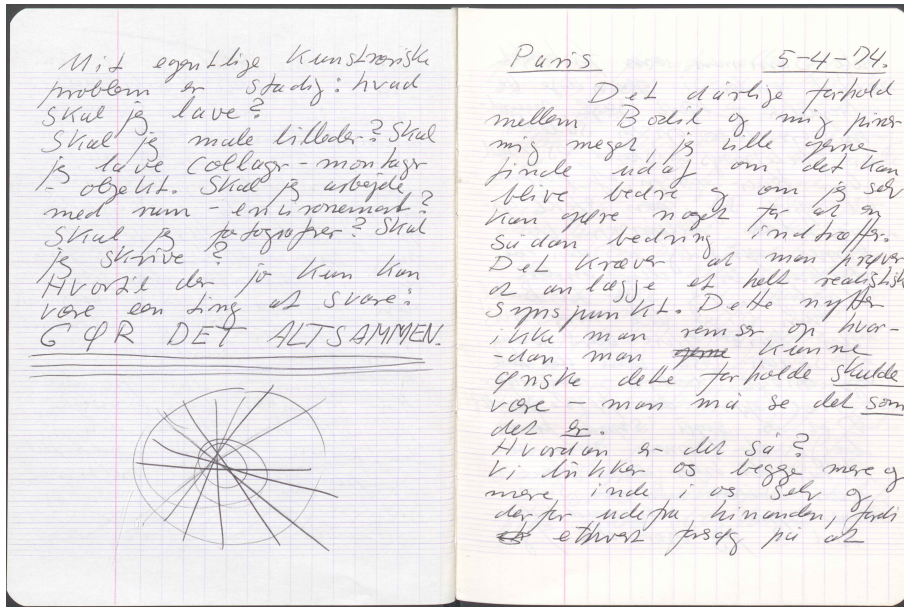 Mit egentlige kunstneriske
problem er stadig: hvad
skal jeg lave?
Skal jeg male billeder? Skal
jeg lave collage-montage
- objekt. Skal jeg arbejde
med rum - environement?
Skal jeg fotografere? Skal
jeg skrive?
Hvortil der jo kun kan
være een ting at svare:
GØR DET ALTSAMMEN.
Paris 5-4-74.
Det dårlige forhold
mellem Bodil og mig piner
mig meget, jeg ville gerne
finde ud af om det kan
blive bedre og om jeg selv
kan gøre noget for at en
sådan bedring indtræffer.
Det kræver at man prøver
at anlægge et helt realistisk
synspunkt. Dette nytter
ikke man remser op hvor-
-dan man gerne kunne
ønske dette forholde skulde
være - man må se det som
det er.
Hvordan er det så?
Vi lukker os begge mere og
mere inde i os selv og
derfor ude fra hinanden, fordi
ethvert forsøg på at